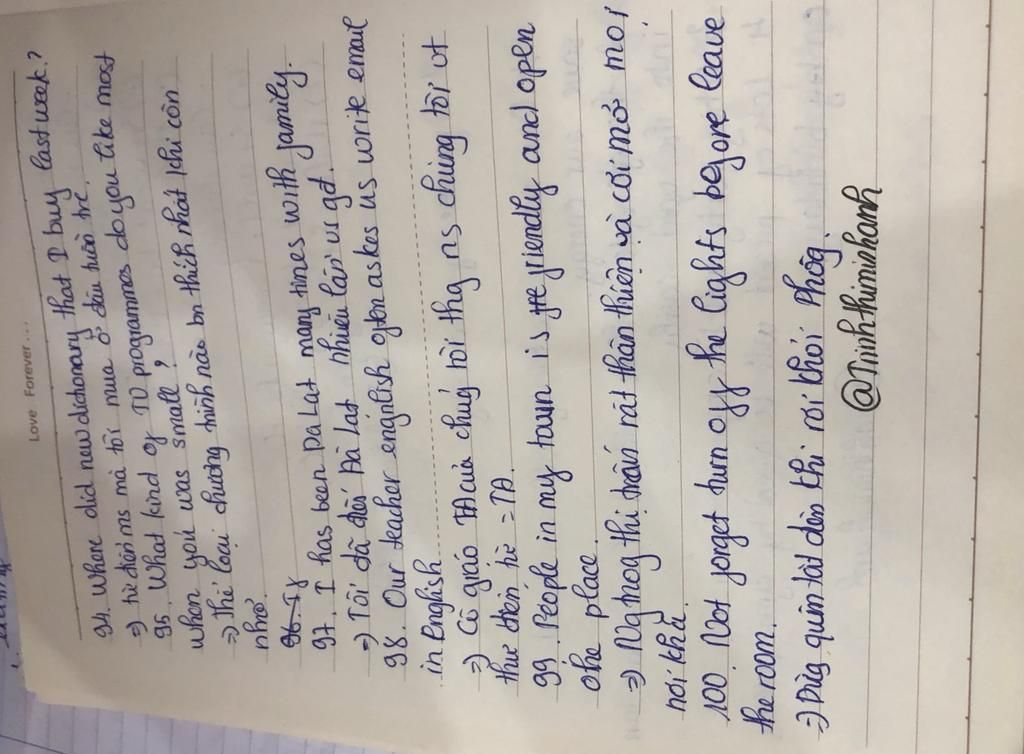 Love Forever...
94. Where did new dictionary that I buy last week?
=) từ điển ms mà tôi mua ở đâu tuần trc.
95. What kind of TV programmes do you like most
when you was small?
=) Thể loại chương trình nào bn thích nhất khi còn
nhỏ.
96. If
97. I has been Da Lat many times with family.
=) Tôi đã đến Đà Lạt nhiều lần vs gđ.
98. Our teacher english often askes us write email
in English
=) Cô giáo TA của chúng tôi thg ns chúng tôi vt
thư điện tử = TA.
99. People in my town is fre friendly and open
the place.
=) Ng trog thị trấn rất thân thiện và cởi mở mọi
nơi khá.
100. Not forget turn off the lights before leave
the room.
=) Đừg quên tắt đèn khi rời khỏi phòg.
@Trinhthiminhanh